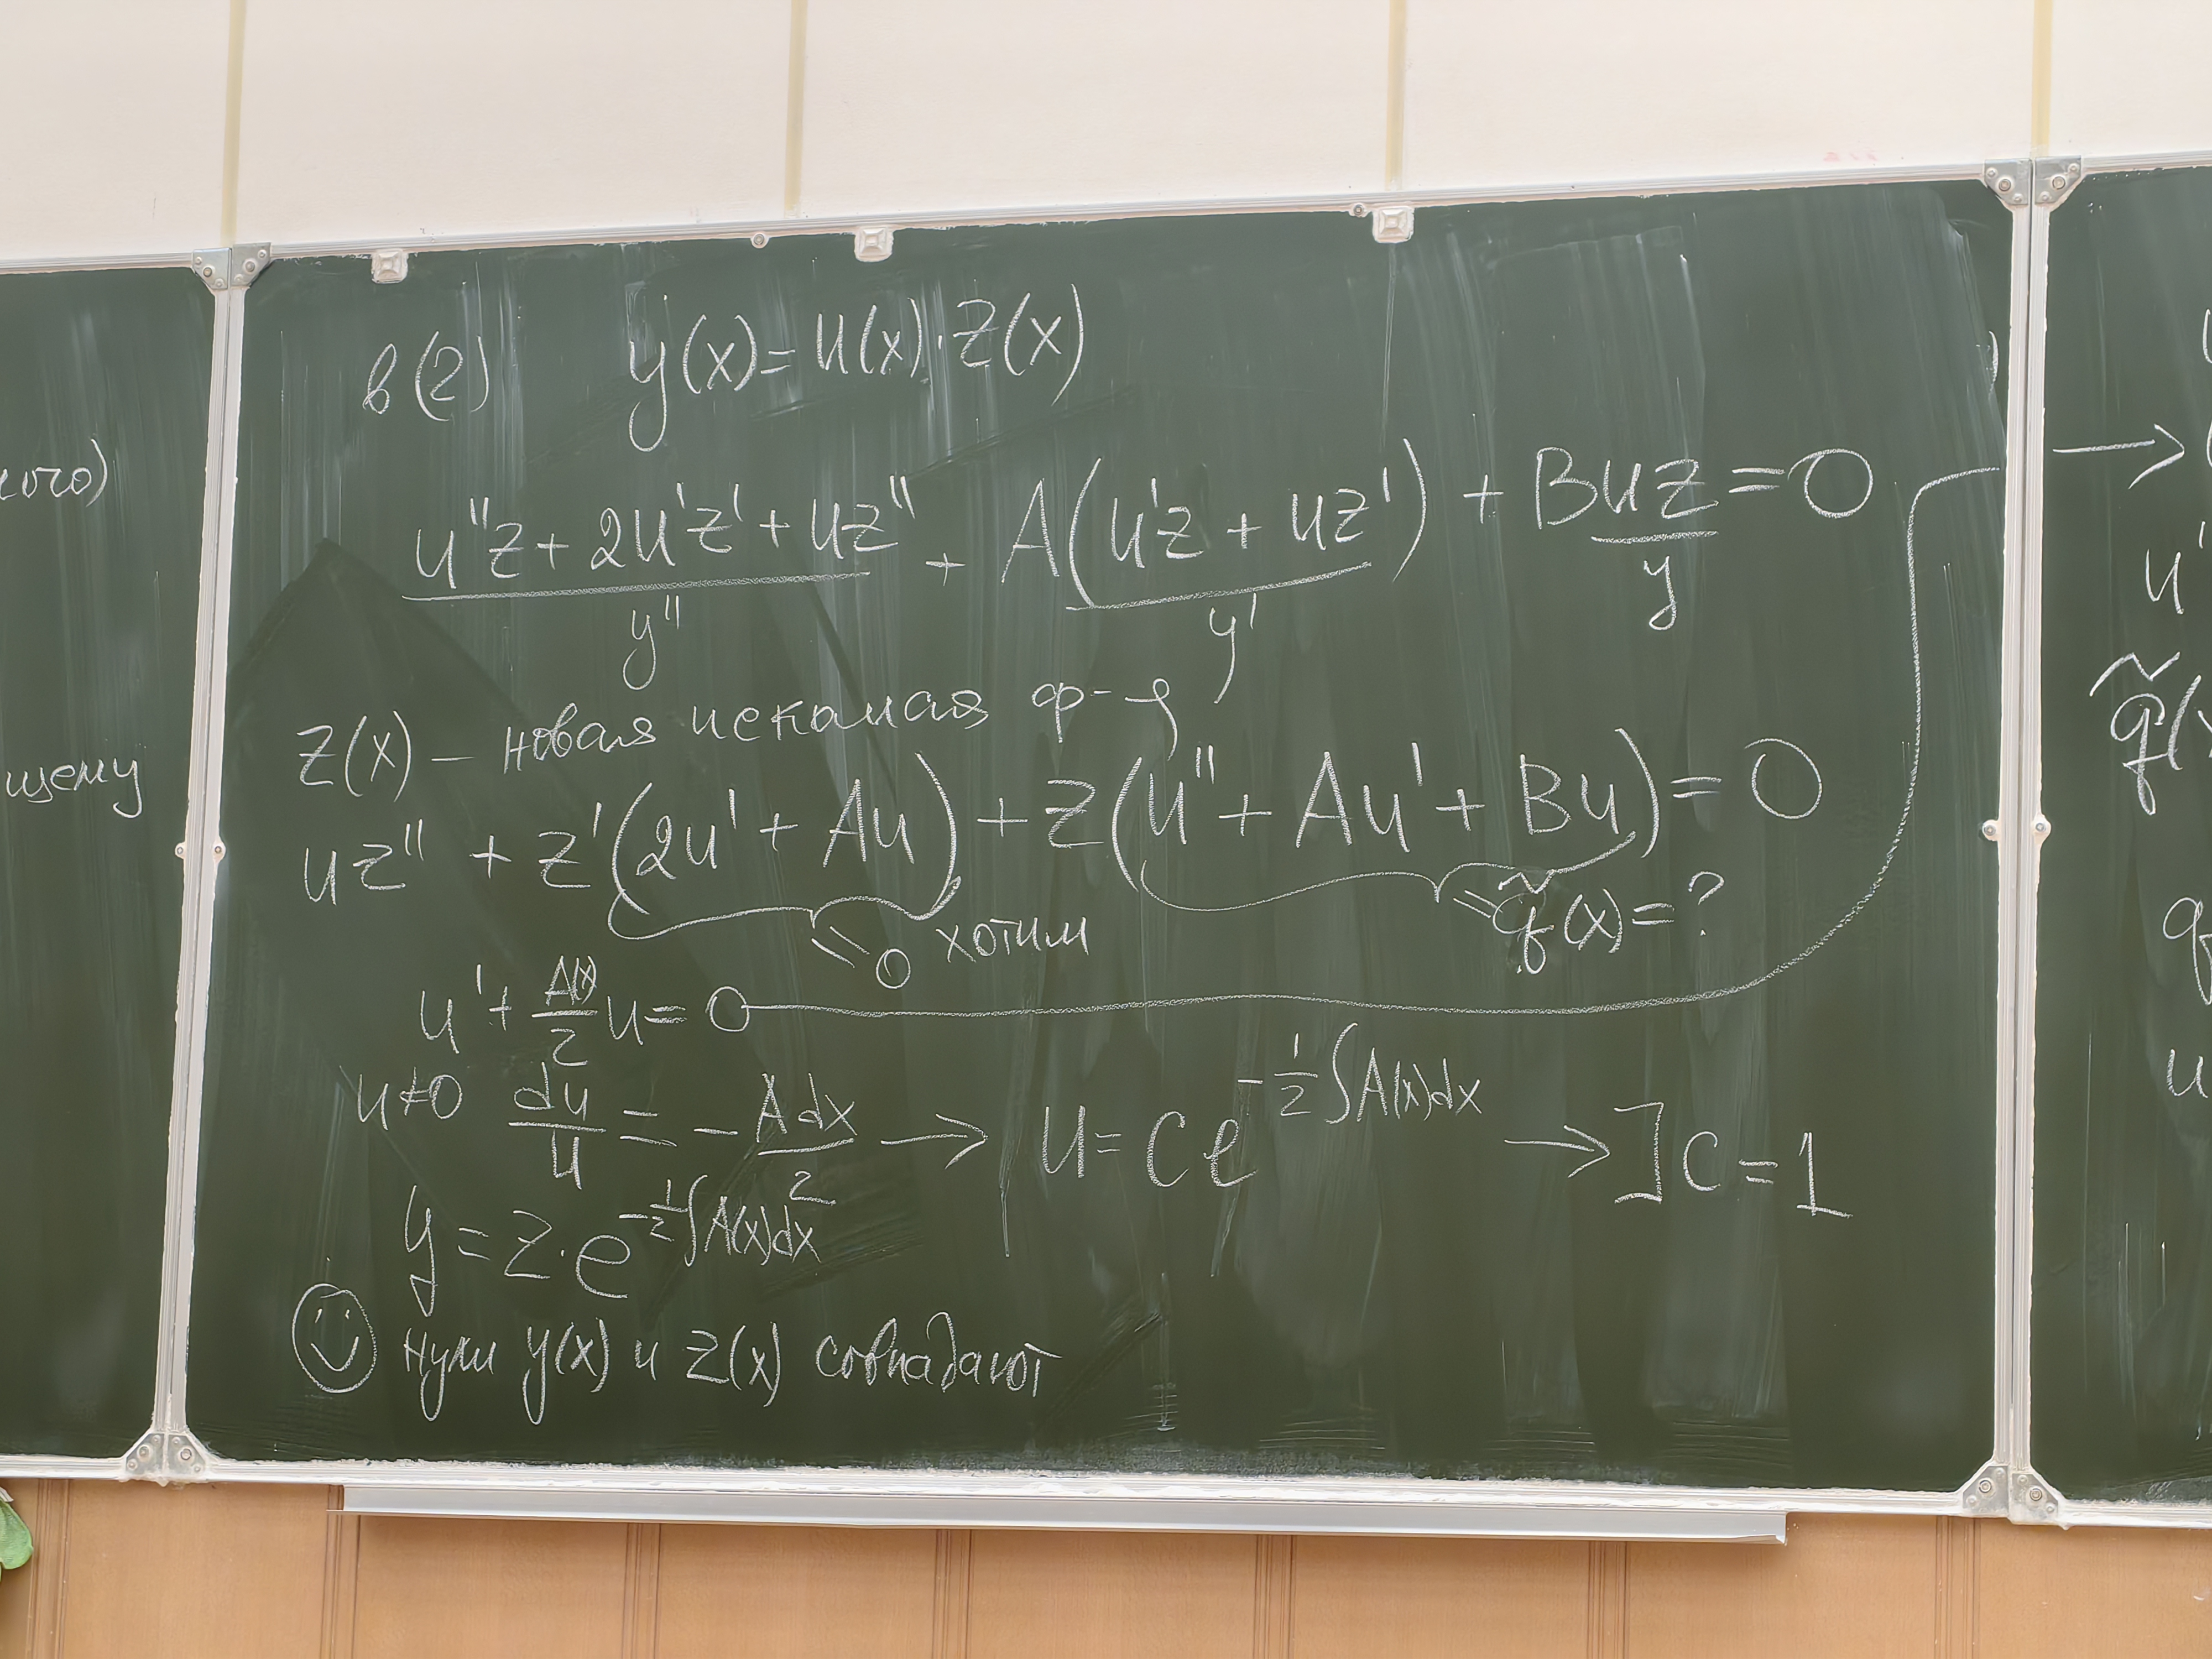 ого)
щему
в (2) y(x) = u(x)·z(x)
u''z + 2u'z' + uz'' + A(u'z + uz') + Buz = 0
y'' y' y
z(x) – новая искомая ф-я
uz'' + z'(2u' + Au) + z(u'' + Au' + Bu) = 0
= 0 хотим = q̃(x) = ?
u' + A(x)/2 u = 0
u ≠ 0 du/u = - A dx/2 → u = Ce^{-1/2 ∫A(x)dx} → ] C = 1
y = z·e^{-1/2 ∫A(x)dx}
Нули y(x) и z(x) совпадают
→ (
u'
q̃(x
q
u